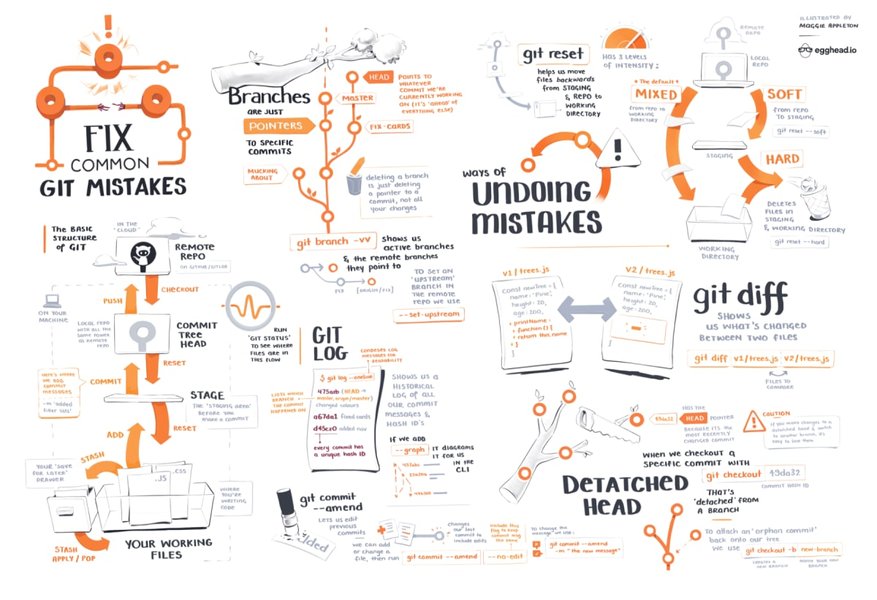 FIX
COMMON
GIT MISTAKES
THE BASIC
STRUCTURE
OF GIT
IN THE
'CLOUD'
REMOTE
REPO
PUSH
CHECKOUT
ON YOUR
MACHINE
COMMIT
TREE
HEAD
RESET
COMMIT
STAGE
THE 'STAGING AREA'
BEFORE YOU
MAKE A COMMIT
ADD
RESET
STASH
YOUR 'SAVE
FOR LATER'
DRAWER
.JS
.CSS
WHERE
YOU'RE
WRITING
CODE
STASH
APPLY / POP
YOUR WORKING
FILES
RUN
'GIT STATUS'
TO SEE WHERE
FILES ARE IN
THIS FLOW
Branches
ARE JUST
POINTERS
TO SPECIFIC
COMMITS
MUCKING
ABOUT
HEAD
POINTS TO
WHATEVER
COMMIT WE'RE
CURRENTLY WORKING
ON (IT'S 'AHEAD' OF
EVERYTHING ELSE)
MASTER
FIX-CARDS
deleting a branch
is just deleting
a pointer to a
commit, not all
your changes
git branch -vv
shows us
active branches
& the remote branches
they point to
TO SET AN
'UPSTREAM'
BRANCH IN
THE REMOTE
REPO WE USE
--set-upstream
GIT
LOG
$ git log --oneline
475aab (HEAD →
master, origin/master)
changed colours
a67de1 fixed cards
d45ez0 added nav
every commit has
a unique hash ID
SHOWS US A
HISTORICAL
LOG OF ALL
OUR COMMIT
MESSAGES &
HASH ID'S
IF WE ADD
--graph
IT DIAGRAMS
IT FOR US
IN THE
CLI
git commit
--amend
Lets us edit
previous
commits
we can add
or change a
file, then run
git commit --amend
changes our
last commit
to include edits
--no-edit
To change the
message we use:
git commit --amend
-m "the new message"
git reset
helps us move
files backwards
from STAGING
& REPO to
WORKING
DIRECTORY
HAS 3 LEVELS
OF INTENSITY:
* The default *
MIXED
from REPO to
WORKING
DIRECTORY
REMOTE
REPO
LOCAL
REPO
SOFT
from REPO
to STAGING
git reset --soft
STAGING
HARD
DELETES
FILES IN
STAGING
& WORKING DIRECTORY
git reset --hard
WORKING
DIRECTORY
ILLUSTRATED BY
MAGGIE APPLETON
egghead.io
WAYS OF
UNDOING
MISTAKES
V1 / trees.js
const newTree = {
name: 'Pine',
height: 20,
age: 200,
+ printName
+ function() {
+ return this.name
V2 / trees.js
const newTree = {
name: 'Pine',
height: 20,
age: 200,
git diff
SHOWS
US WHAT'S CHANGED
BETWEEN TWO FILES
git diff v1/trees.js v2/trees.js
FILES TO
COMPARE
49da32
HAS THE
HEAD
POINTER
BECAUSE IT'S THE
MOST RECENTLY
CHANGED COMMIT
CAUTION
WHEN WE CHECKOUT A
SPECIFIC COMMIT WITH
git checkout 49da32
COMMIT HASH ID
DETATCHED
HEAD
THAT'S
'detached' FROM
A BRANCH
To attach an 'orphan commit'
back onto our tree
we use
git checkout -b new-branch